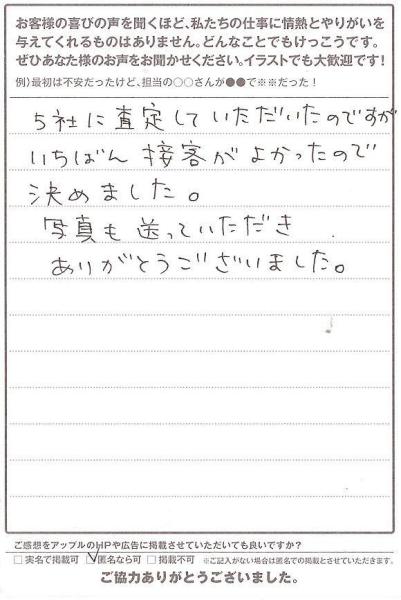 お客様の喜びの声を聞くほど、私たちの仕事に情熱とやりがいを
与えてくれるものはありません。どんなことでもけっこうです。
ぜひあなた様のお声をお聞かせください。イラストでも大歓迎です!
例）最初は不安だったけど、担当の○○さんが●●で※※だった！
5社に査定していただいたのですが
いちばん接客がよかったので
決めました。
写真も送っていただき
ありがとうございました。
ご感想をアップルのHPや広告に掲載させていただいても良いですか?
□実名で掲載可 ☑匿名なら可 □掲載不可 ※ご記入がない場合は匿名での掲載とさせていただきます。
ご協力ありがとうございました。